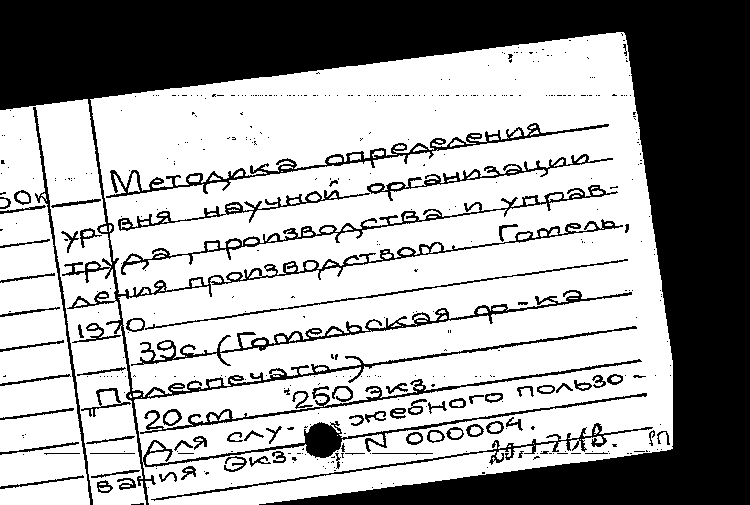 50к
Методика определения
уровня научной организации
труда, производства и управ-
ления производством. Гомель,
1970.
39с. (Гомельская ф-ка
"Полеспечать")
20см. 250 экз.
Для служебного пользо-
вания. Экз. N 000004.
РП